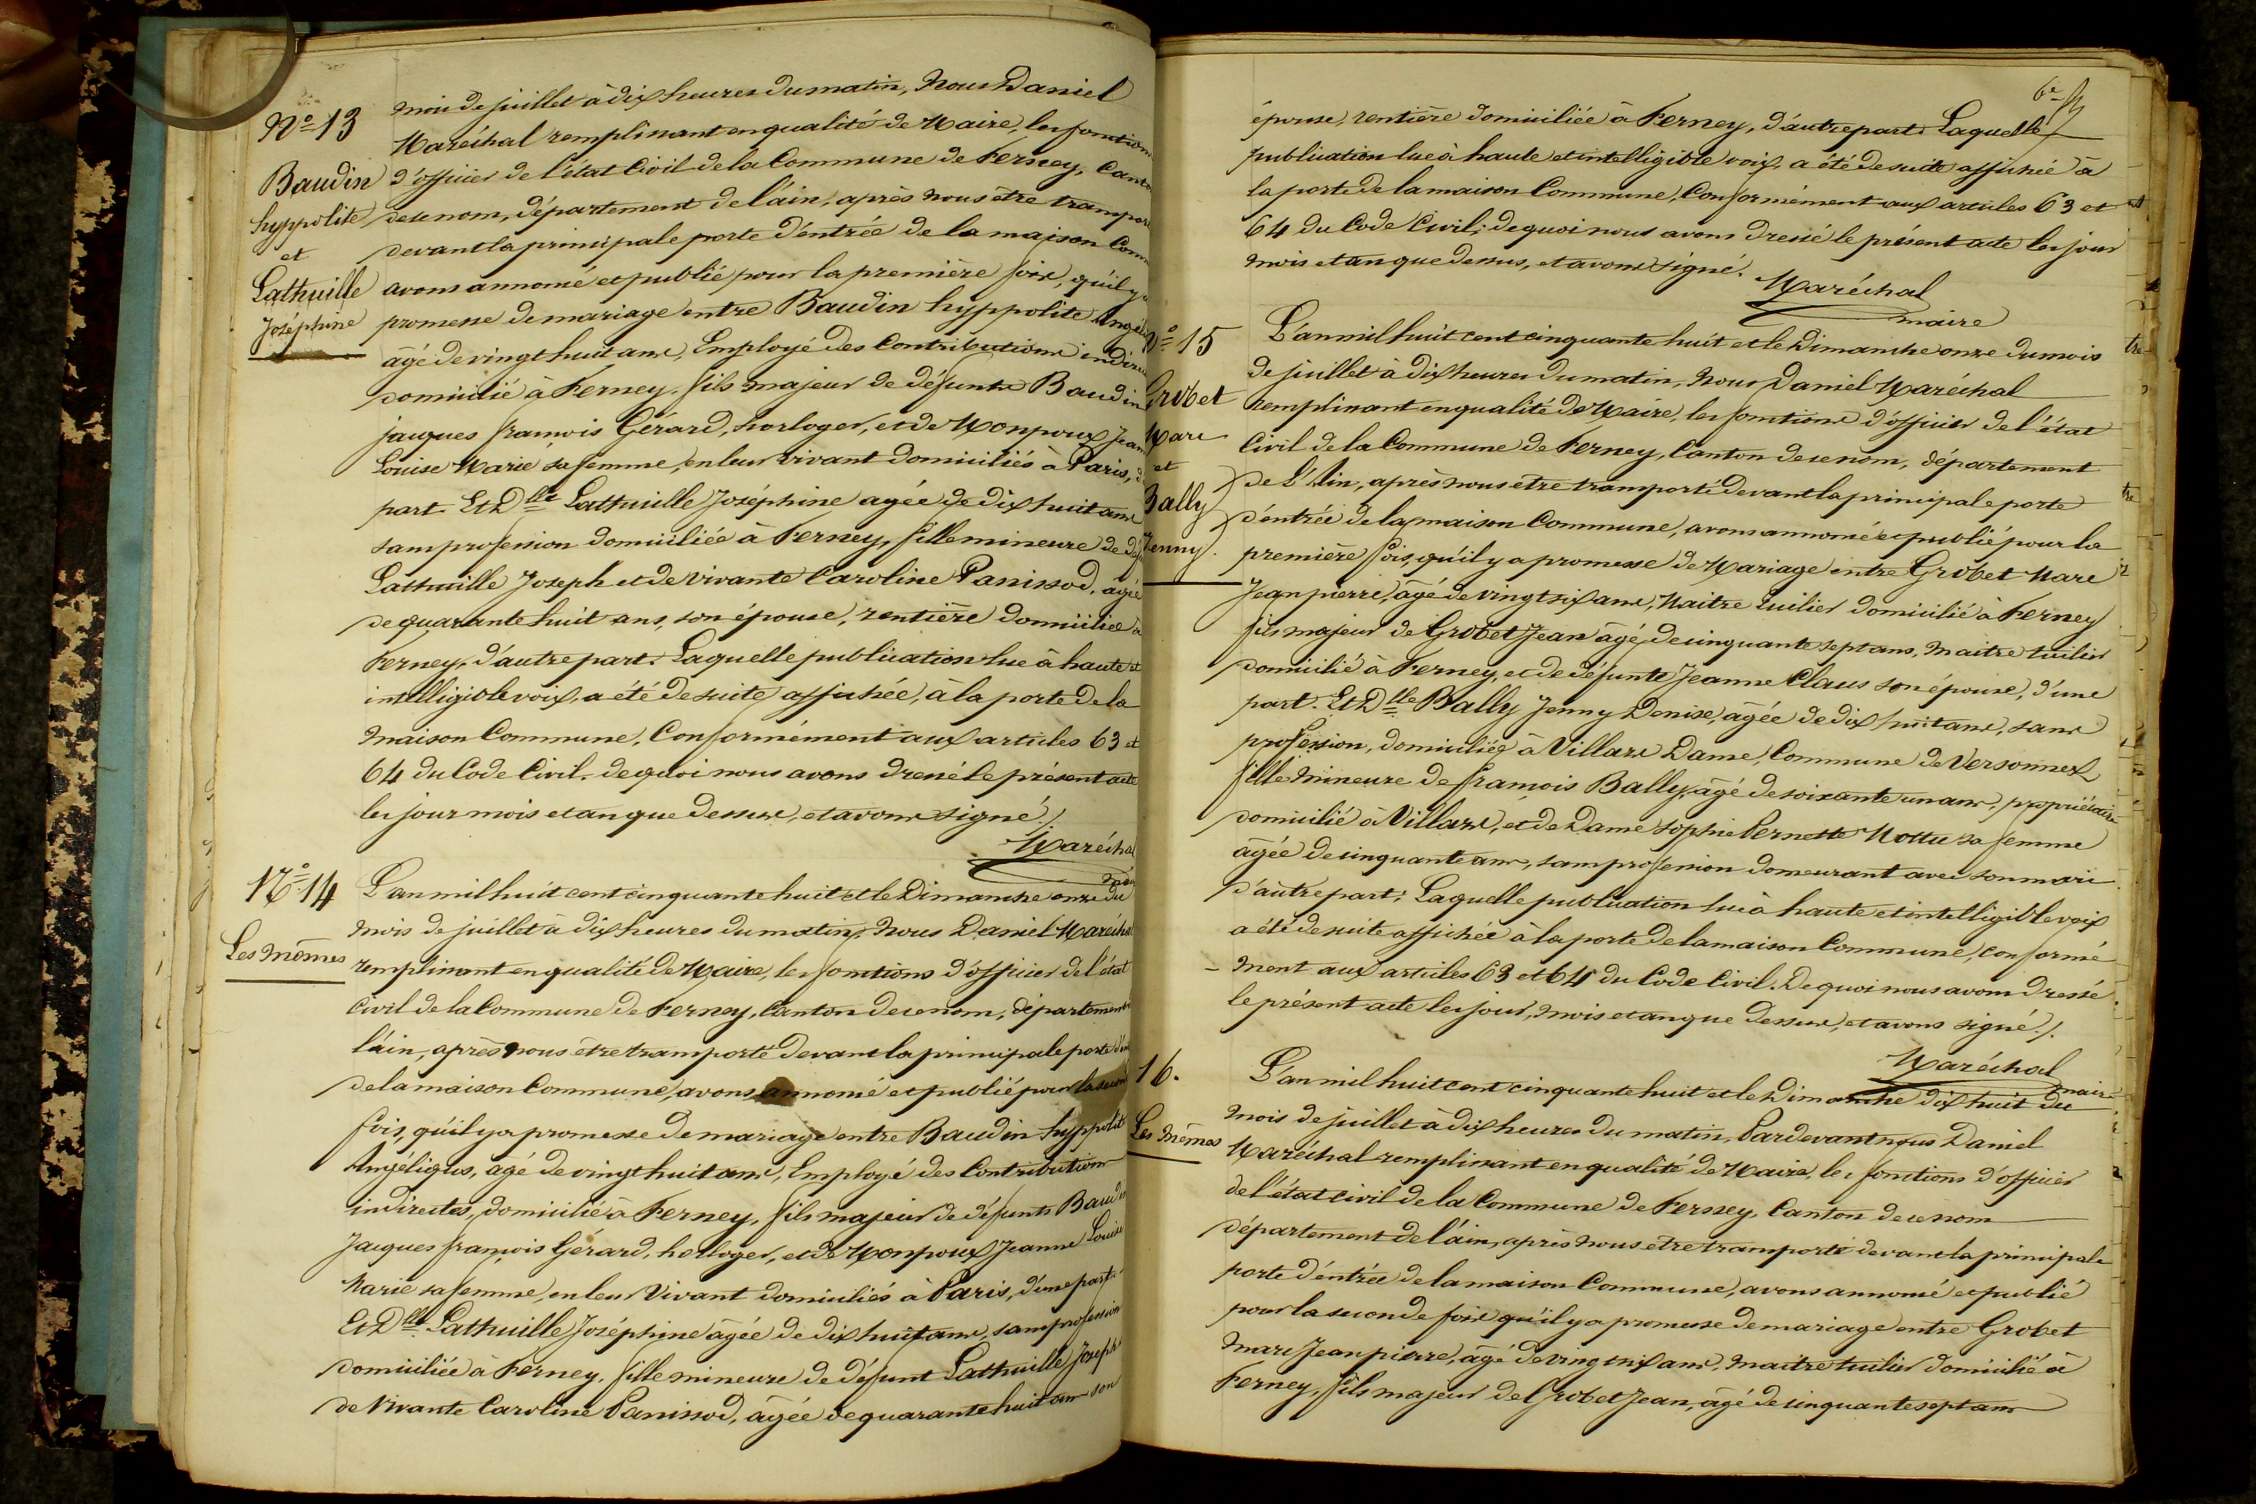 N° 13
Baudin
hyppolite
et
Lathuille
Joséphine
mois de juillet à dix heures du matin, Nous Daniel
Maréchal remplissant en qualité de Maire, les fonction
d'officier de l'état Civil de la Commune de Ferney, Cant
de ce nom, département de l'áin, après nous être transpor
devant la principale porte d'éntrée de la maison Com
avons annoncé et publié pour la première fois, qu'il y a
promesse de mariage entre Baudin hyppolite Angél
âgé de vingt huit ans, Employé des Contributions indirec
domicilié à Ferney, fils majeur de défunts Baudin
jacques françois Gérard, horloger, et de Monpoux Jean
Louise Marie sa femme, en leur vivant domiciliés à Paris, d
part. Et Dlle Lathuille Joséphine agée de dix huit ans
sans profession domiciliée à Ferney, fille mineure de déf
Lathuille Joseph et de vivante Caroline Panissod, agée
de quarante huit ans, son épouse, rentière domiciliée à
Ferney, d'autre part. Laquelle publication lue à haute et
intelligible voix, a été de suite affichée, à la porte de la
Maison Commune, Conformément aux articles 63 et
64 du Code Civil, de quoi nous avons dressé le présent acte
les jour mois et an que dessus, et avons signé./
Maréchal
N° 14
Les mêmes
L'an mil huit cent cinquante huit et le Dimanche onze du
mois de juillet à dix heures du matin, Nous Daniel Maréchal
remplissant en qualité de Maire, les fonctions d'officier de l'état
Civil de la Commune de Ferney, Canton de ce nom, département de
l'áin, après nous être transporté devant la principale porte d'en
de la maison Commune, avons annoncé et publié pour la second
fois, qu'il y a promesse de mariage entre Baudin hyppolite
Angéliqus, agé de vingt huit ans, Employé des Contributions
indirectes, domicilié à Ferney, fils majeur de défunts Baudin
Jacques françois Gérard, horloger, et de Monpoux Jeanne Louise
Marie sa femme, en leur Vivant domiciliés à Paris, d'une part.
Et Dlle Lathuille Joséphine âgée de dix huit ans, sans profession
domiciliée à Ferney, fille mineure de défunt Lathuille Joseph
de Vivante Caroline Panissod, âgée de quarante huit ans son
6e
épouse, rentière domiciliée à Ferney, d'autre part. Laquelle
publication lue à haute et intelligible voix, a été de suite affichée à
la porte de la maison Commune, Conformément aux articles 63 et
64 du Code Civil; de quoi nous avons dressé le présent acte les jour
mois et an que dessus, et avons signé.
Maréchal
maire
N° 15
Grobet
Marc
et
Bally
Jenny.
L'an mil huit cent cinquante huit et le Dimanche onze du mois
de juillet à dix heures du matin, Nous Daniel Maréchal
remplissant en qualité de Maire, les fonctions d'officier de l'état
Civil de la Commune de Ferney, Canton de ce nom, département
de l'Ain, après nous être transporté devant la principale porte
d'éntrée de la maison Commune, avons annoncé et publié pour la
première fois, qu'il y a promesse de Mariage entre Grobet Marc
Jean pierre, âgé de vingt six ans, Maitre tuilier domicilié à Ferney
fils majeur de Grobet Jean âgé de cinquante sept ans, Maitre tuilier
domicilié à Ferney, et de défunte Jeanne Claus son épouse, d'une
part. Et Dlle Bally Jenny Denise, âgée de dix huit ans, sans
profession, domiciliée à Villars Dame, Commune de Versonnex
fille mineure de françois Bally, âgé de soixante un ans, propriétaire
domicilié à Villars, et de Dame Sophie Pernette Mottu sa femme
âgée de cinquante ans, sans profession demeurant avec son mari
d'autre part; Laquelle publication lue à haute et intelligible voix
a été de suite affichée à la porte de la maison Commune, conformé
- ment aux articles 63 et 64 du Code Civil. De quoi nous avons dressé
le présent acte les jour, mois et an que dessus, et avons signé./.
Maréchal
maire
16.
Les mêmes
L'an mil huit cent cinquante huit et le Dimanche dix huit du
mois de juillet à dix heures du matin, Pardevant nous Daniel
Maréchal remplissant en qualité de Maire, les fonctions d'officier
de l'état civil de la Commune de Ferney, Canton de ce nom
département de l'áin, après nous être transporté devant la principale
porte d'éntrée de la maison Commune, avons annoncé et publié
pour la seconde fois qu'il y a promesse de mariage entre Grobet
Marc Jean pierre, âgé de vingt six ans, maitre tuilier domicilié à
Ferney, fils majeur de Grobet Jean, âgé de cinquante sept ans